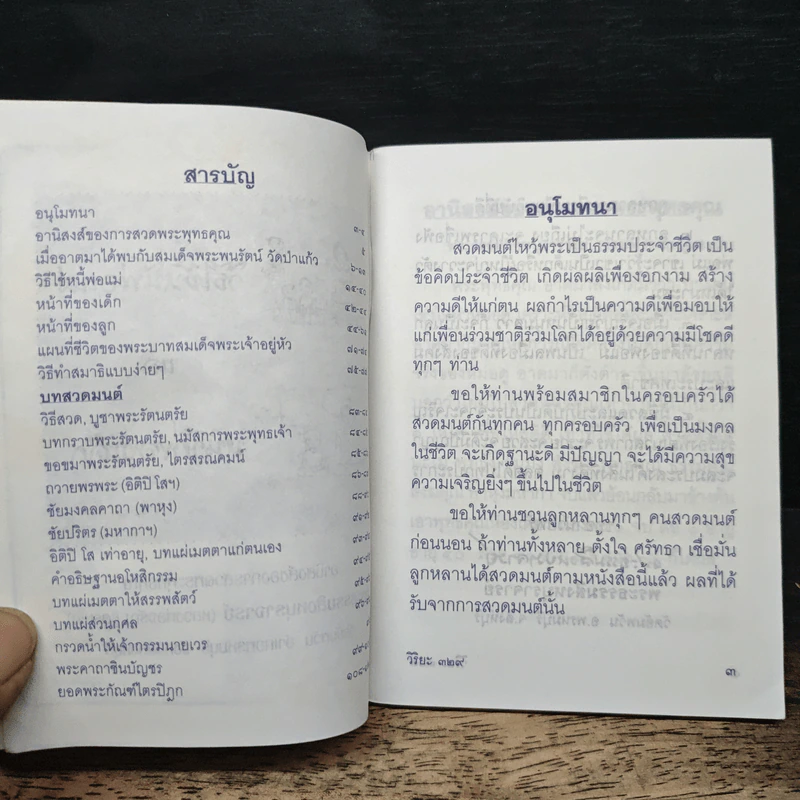 สารบัญ
อนุโมทนา
อานิสงส์ของการสวดพระพุทธคุณ ๓-๔
เมื่ออาตมาได้พบกับสมเด็จพระพนรัตน์ วัดป่าแก้ว ๕
วิธีใช้หนี้พ่อแม่
หน้าที่ของเด็ก ๑๔-๔๐
หน้าที่ของลูก
แผนที่ชีวิตของพระบาทสมเด็จพระเจ้าอยู่หัว
วิธีทำสมาธิแบบง่ายๆ
บทสวดมนต์
วิธีสวด, บูชาพระรัตนตรัย
บทกราบพระรัตนตรัย, นมัสการพระพุทธเจ้า
ขอขมาพระรัตนตรัย, ไตรสรณคมน์
ถวายพรพระ (อิติปิ โสฯ)
ชัยมงคลคาถา (พาหุง)
ชัยปริตร (มหากาฯ)
อิติปิ โส เท่าอายุ, บทแผ่เมตตาแก่ตนเอง
คำอธิษฐานอโหสิกรรม
บทแผ่เมตตาให้สรรพสัตว์
บทแผ่ส่วนกุศล
กรวดน้ำให้เจ้ากรรมนายเวร
พระคาถาชินบัญชร
ยอดพระกัณฑ์ไตรปิฎก
อนุโมทนา
สวดมนต์ไหว้พระเป็นธรรมประจำชีวิต เป็น
ข้อคิดประจำชีวิต เกิดผลผลิเพื่องอกงาม สร้าง
ความดีให้แก่ตน ผลกำไรเป็นความดีเพื่อมอบให้
แก่เพื่อนร่วมชาติร่วมโลกได้อยู่ด้วยความมีโชคดี
ทุกๆ ท่าน
ขอให้ท่านพร้อมสมาชิกในครอบครัวได้
สวดมนต์กันทุกคน ทุกครอบครัว เพื่อเป็นมงคล
ในชีวิต จะเกิดฐานะดี มีปัญญา จะได้มีความสุข
ความเจริญยิ่งๆ ขึ้นไปในชีวิต
ขอให้ท่านชวนลูกหลานทุกๆ คนสวดมนต์
ก่อนนอน ถ้าท่านทั้งหลาย ตั้งใจ ศรัทธา เชื่อมั่น
ลูกหลานได้สวดมนต์ตามหนังสือนี้แล้ว ผลที่ได้
รับจากการสวดมนต์นั้น
วิริยะ ๓๒๙
๓